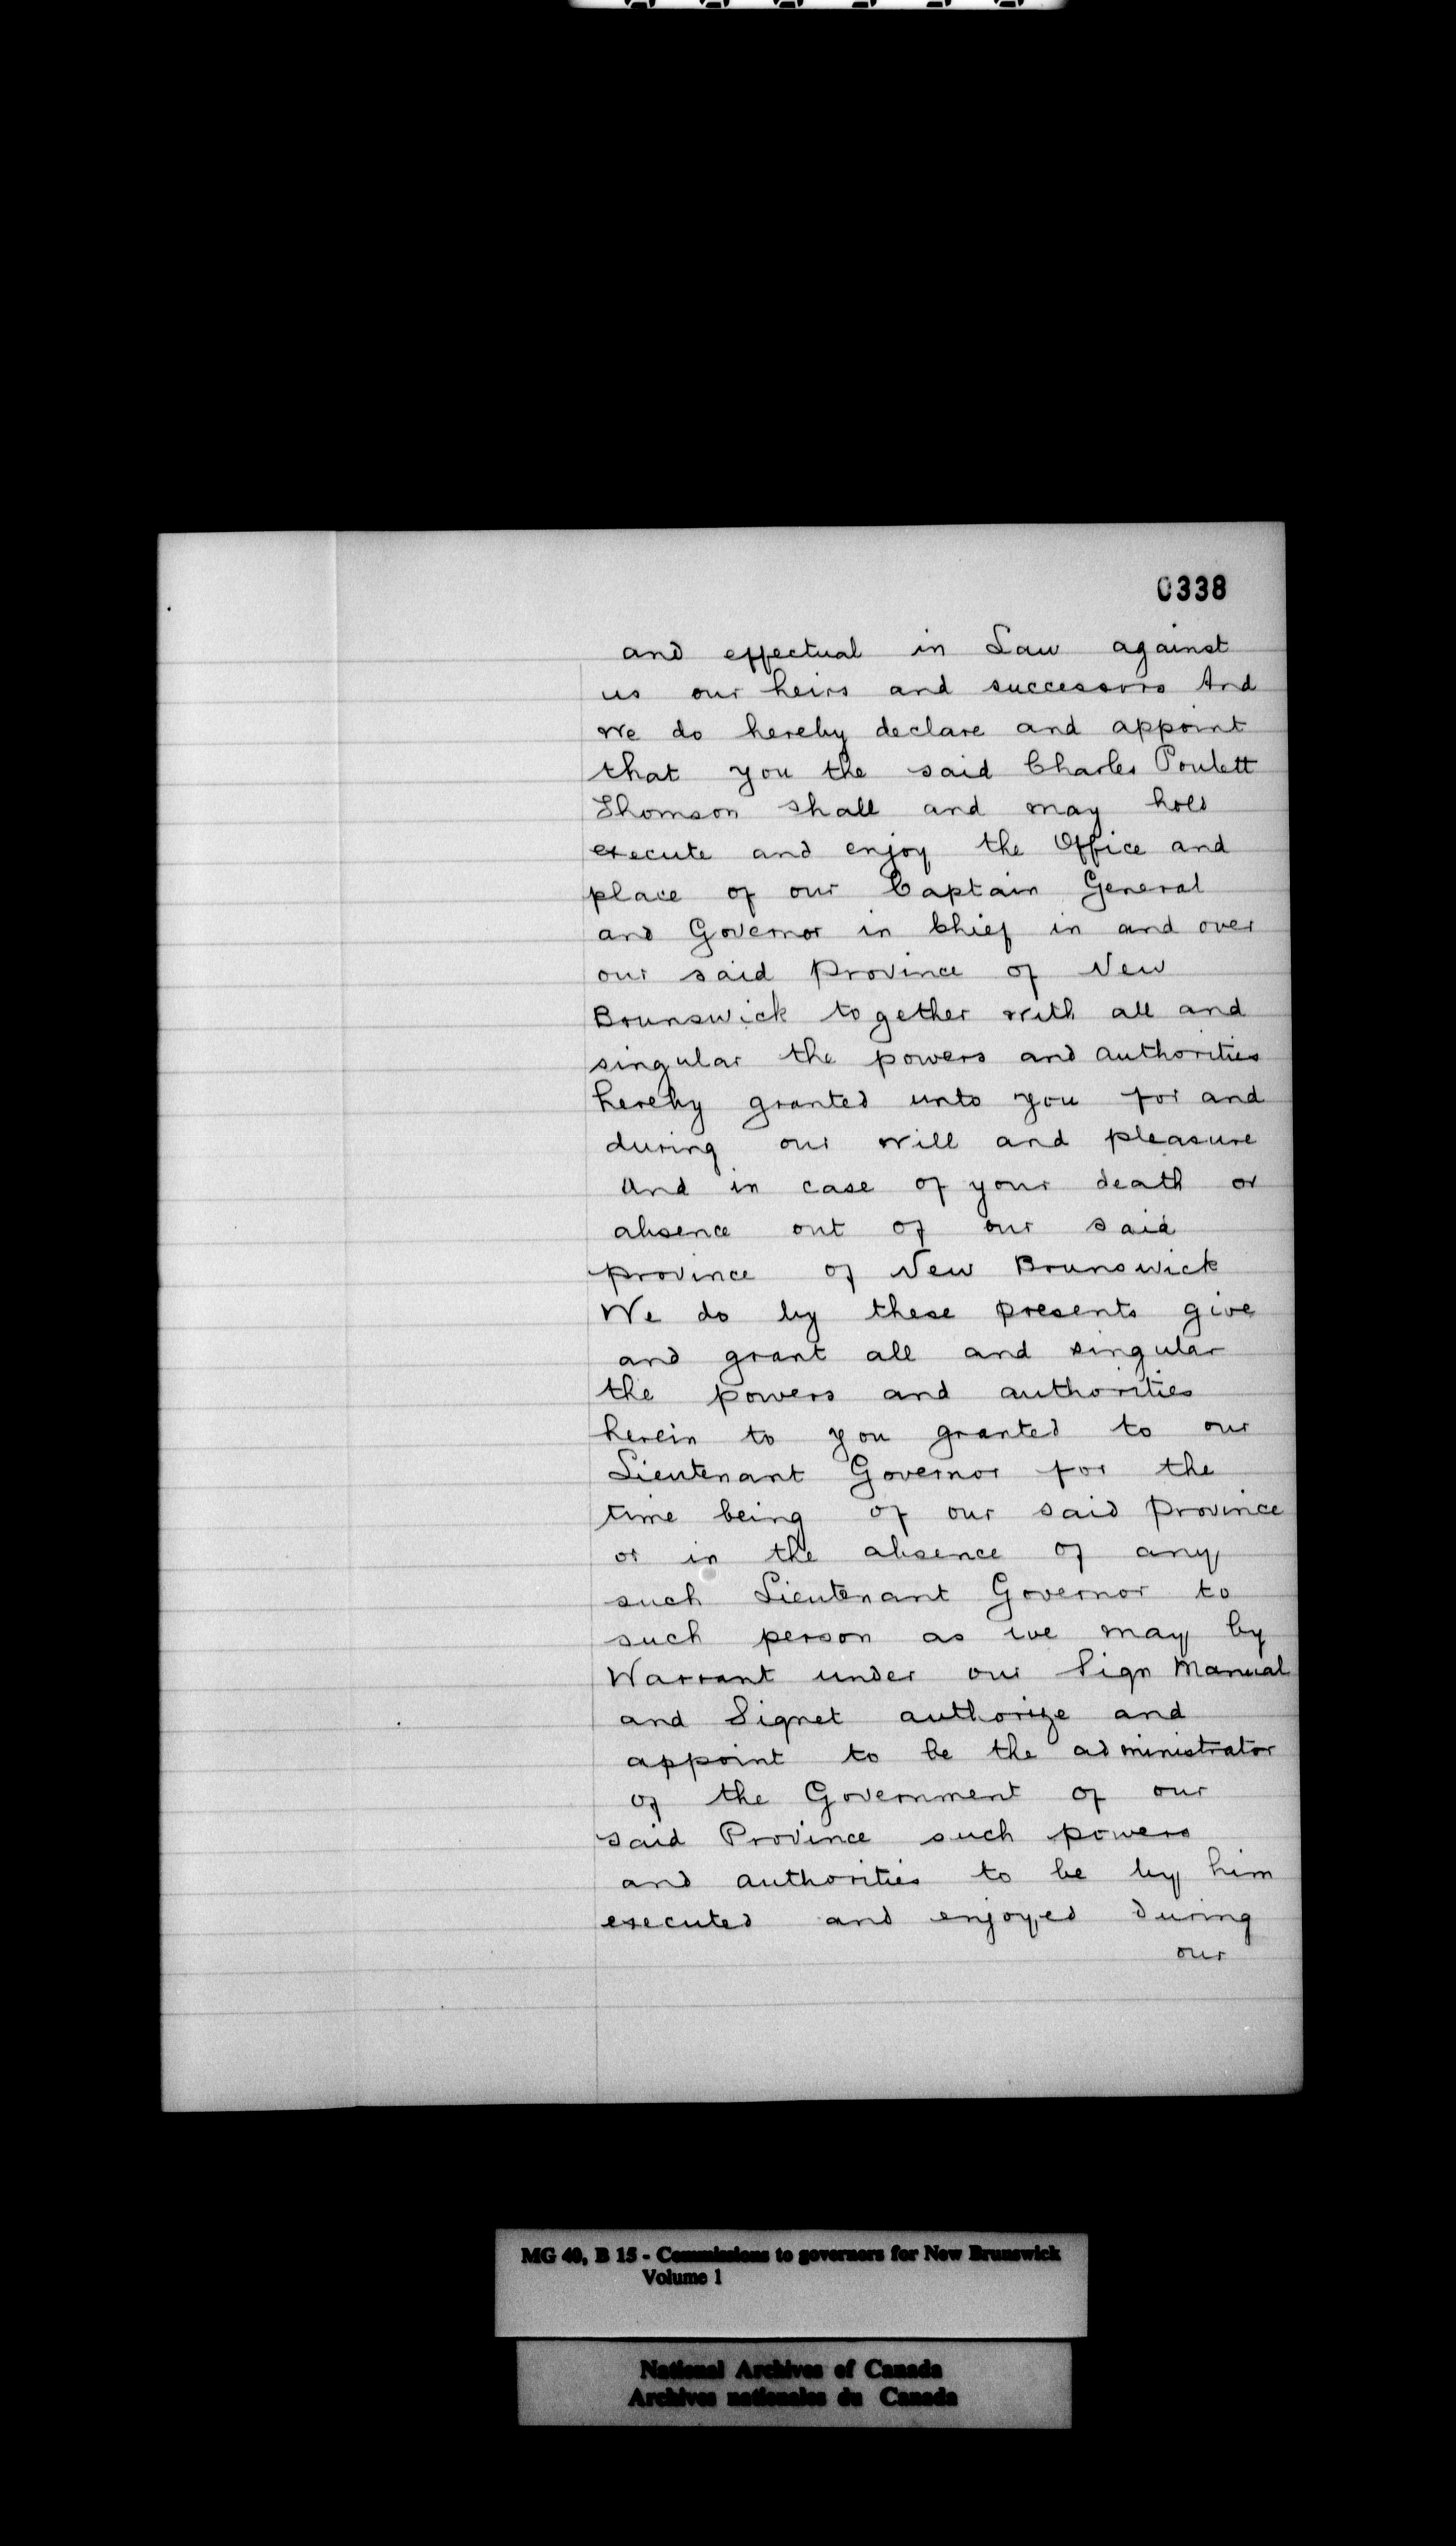 0338
and effectual in Law against
us our heirs and successors And
We do hereby declare and appoint
that you the said Charles Poulett
Thomson shall and may hold
execute and enjoy the Office and
place of our Captain General
and Governor in Chief in and over
our said Province of New
Brunswick together with all and
singular the powers and authorities
hereby granted unto you for and
during our will and pleasure
And in case of your death or
absence out of our said
province of New Brunswick
We do by these presents give
and grant all and singular
the powers and authorities
herein to you granted to our
Lieutenant Governor for the
time being of our said Province
or in the absence of any
such Lieutenant Governor to
such person as we may by
Warrant under our Sign Manual
and Signet authorize and
appoint to be the administrator
of the Government of our
said Province such powers
and authorities to be by him
executed and enjoyed during
our
MG 40, B 15 - Commissions to governors for New Brunswick
Volume 1
National Archives of Canada
Archives nationales du Canada